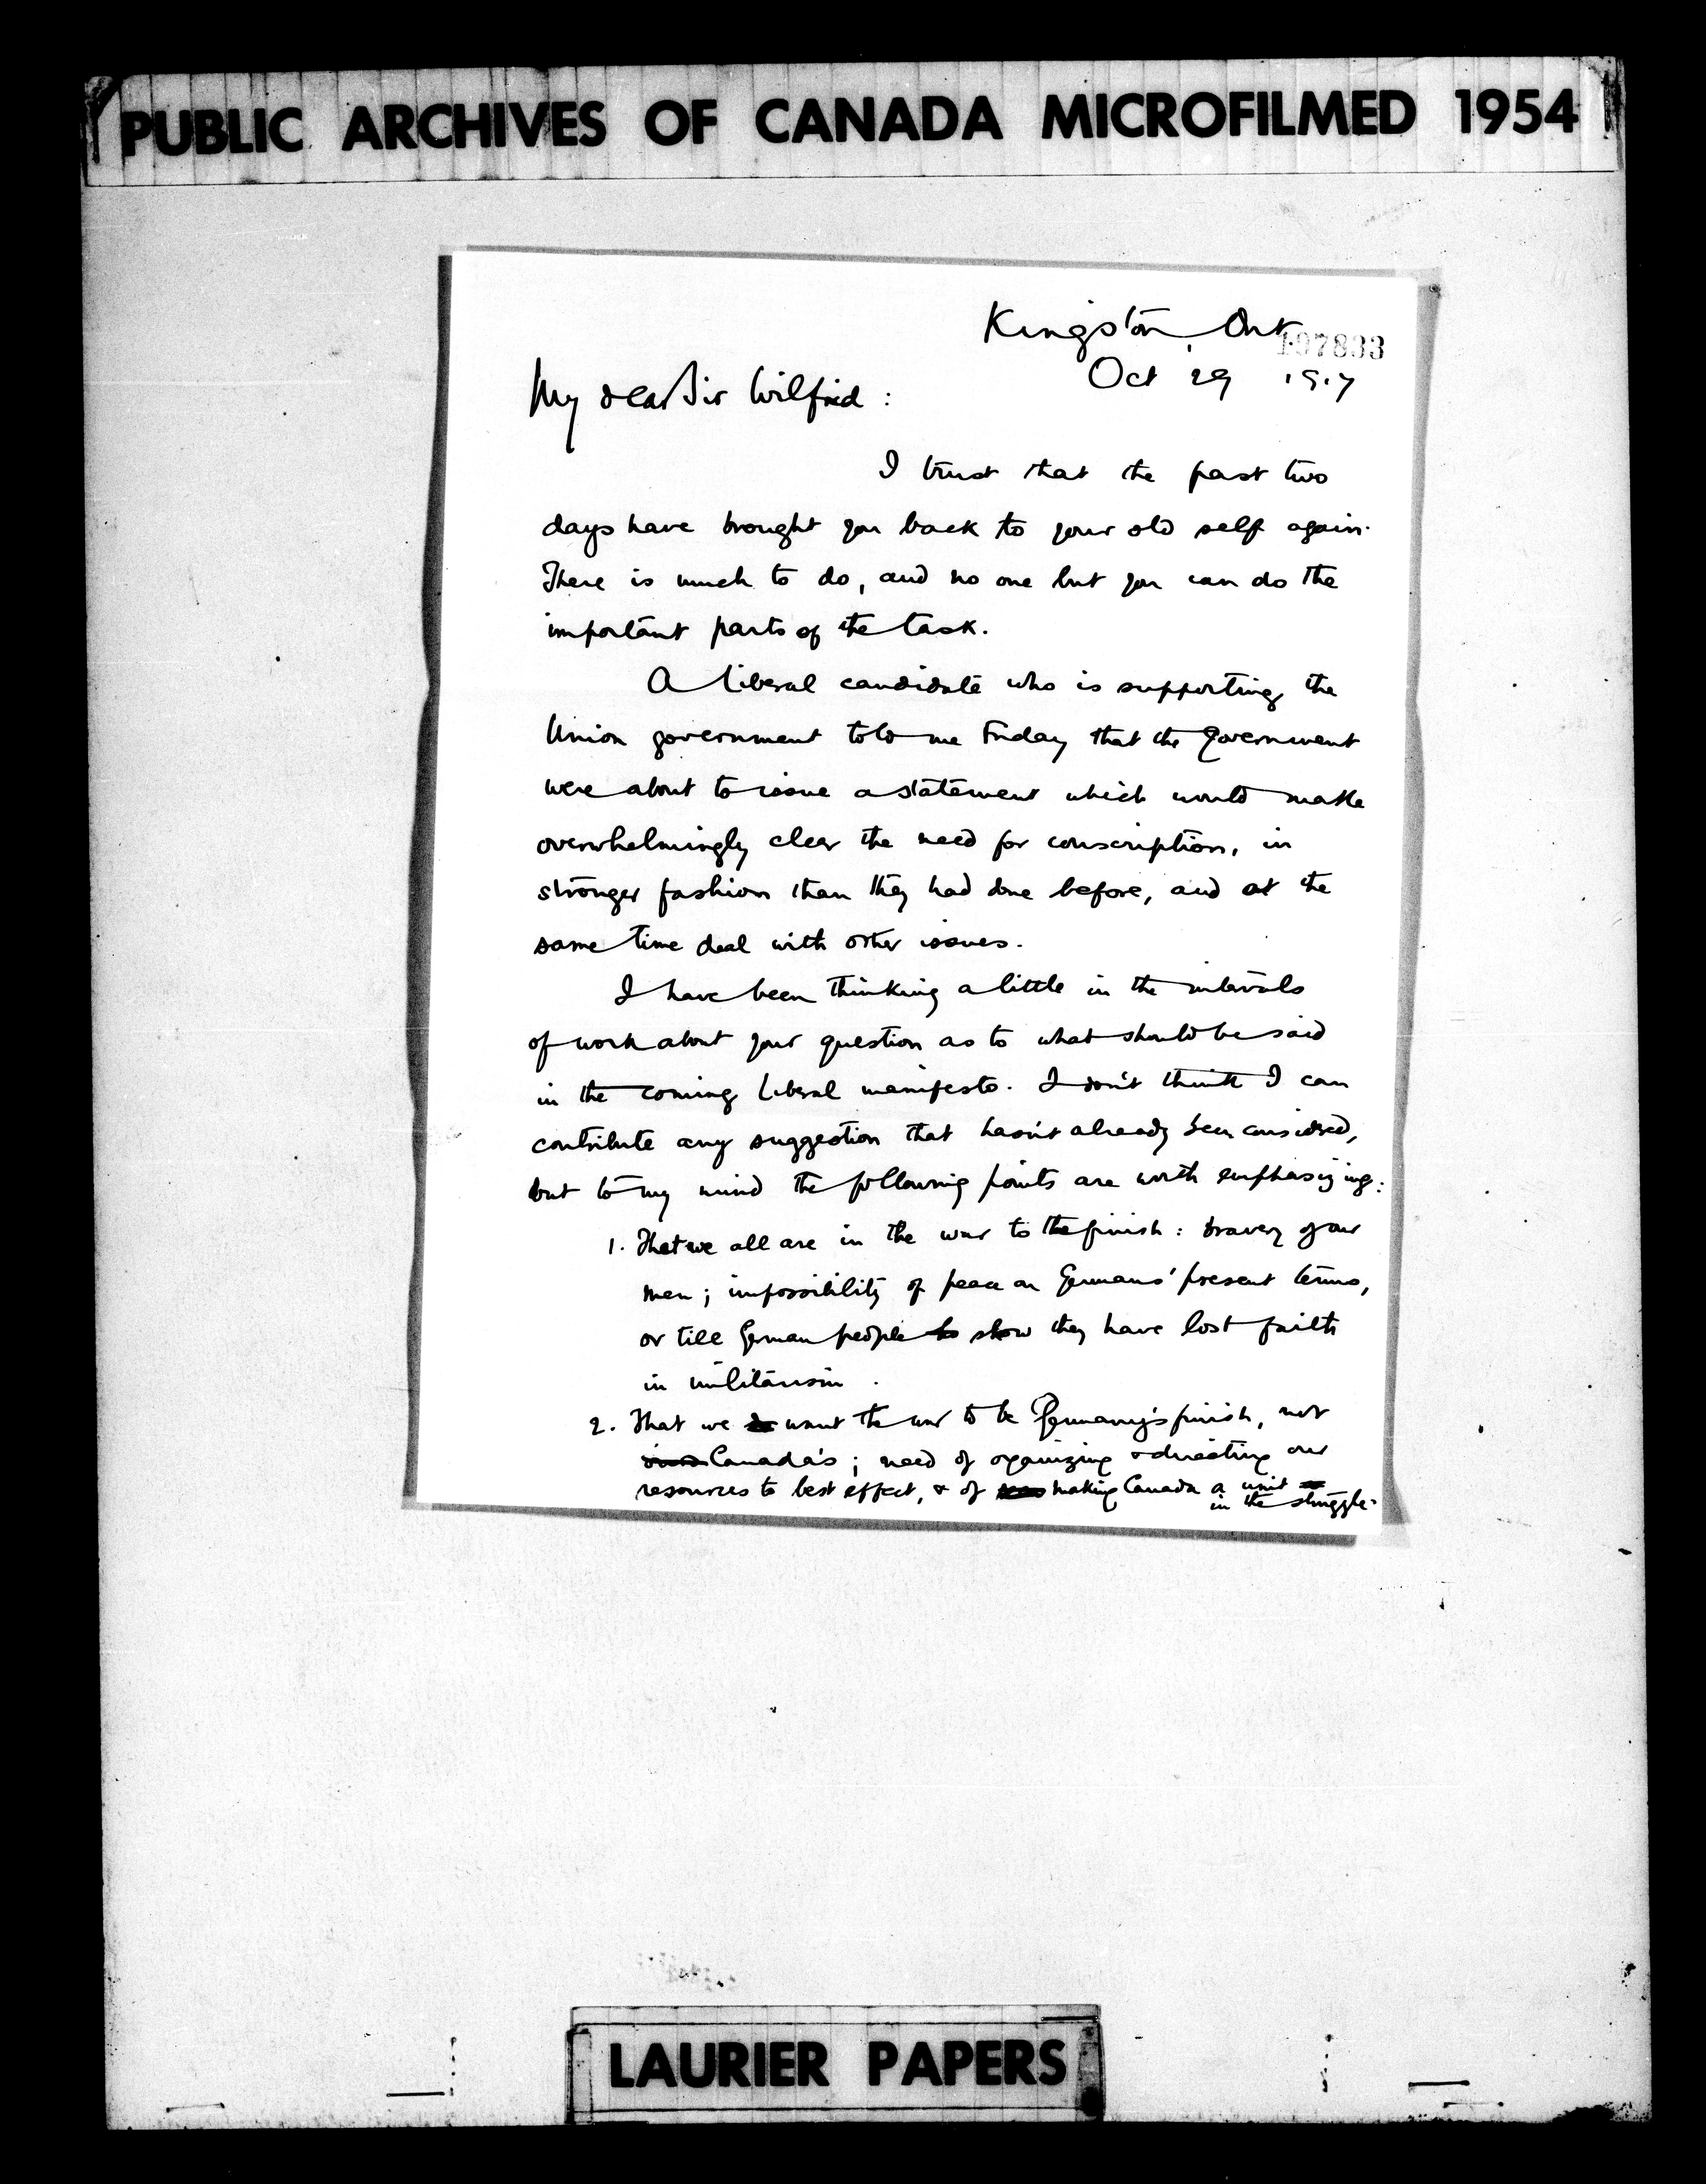 PUBLIC ARCHIVES OF CANADA MICROFILMED 1954
Kingston, Ont
197833
Oct 29 1917
My dear Sir Wilfrid:
I trust that the past two
days have brought you back to your old self again.
There is much to do, and no one but you can do the
important parts of the task.
A Liberal candidate who is supporting the
Union government told me Friday that the Government
were about to issue a statement which would make
overwhelmingly clear the need for conscription, in
stronger fashion than they had done before, and at the
same time deal with other issues.
I have been thinking a little in the intervals
of work about your question as to what should be said
in the coming Liberal manifesto. I don't think I can
contribute any suggestion that hasn't already been considered,
but to my mind the following points are worth emphasizing:
1. That we all are in the war to the finish: bravery of our
men; impossibility of peace on Germans' present terms,
or till German people show they have lost faith
in militarism.
2. That we want the war to be Germany's finish, not
Canada's; need of organizing & directing our
resources to best effect, & of making Canada a unit
in the struggle.
LAURIER PAPERS